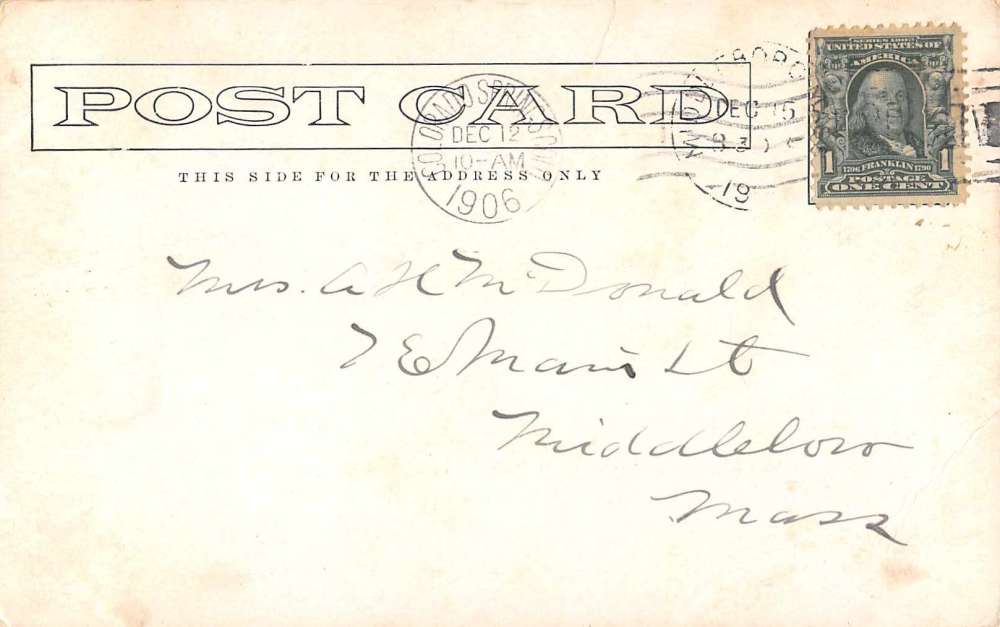 POST CARD
THIS SIDE FOR THE ADDRESS ONLY
DEC 12
10-AM
1906
DEC 15
19
SERIES 1902
UNITED STATES OF
AMERICA
1706 FRANKLIN 1790
POSTAGE
1 ONE CENT 1
Mrs. A H McDonald
7 E Main St
Middleboro
Mass